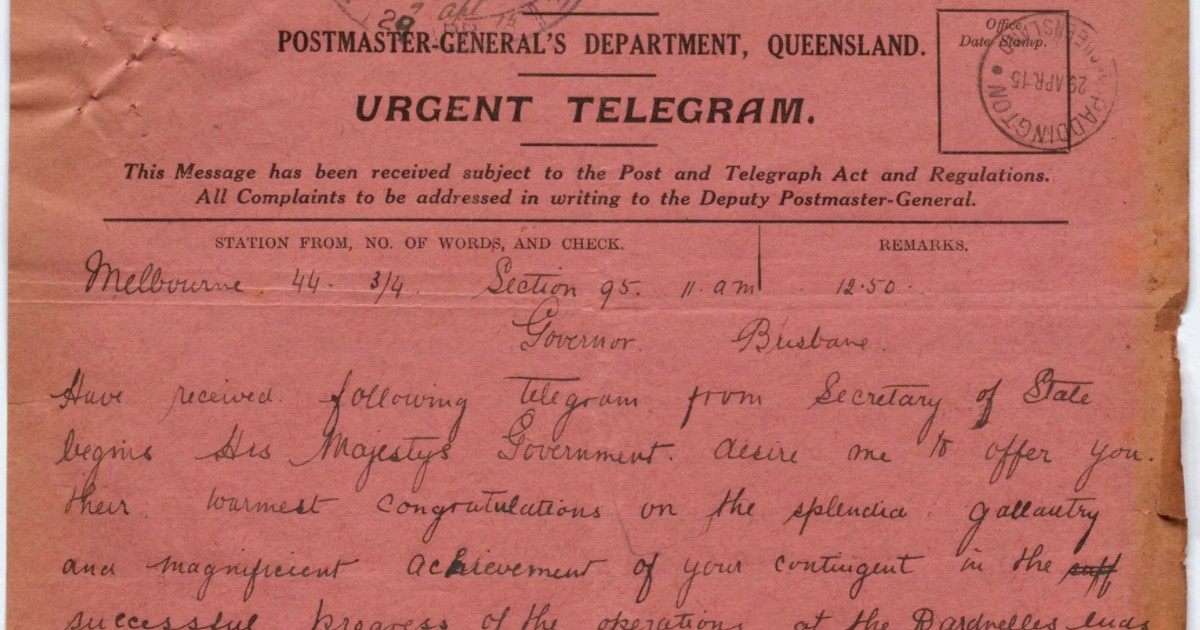 29 Apl 15
POSTMASTER-GENERAL'S DEPARTMENT, QUEENSLAND.
Office
Date Stamp.
PADDINGTON
29 APR 15
QUEENSLAND
URGENT TELEGRAM.
This Message has been received subject to the Post and Telegraph Act and Regulations.
All Complaints to be addressed in writing to the Deputy Postmaster-General.
STATION FROM, NO. OF WORDS, AND CHECK.
REMARKS.
Melbourne. 44. 3/4. Section 95. 11. am 12.50.
Governor. Brisbane.
Have received. following Telegram from Secretary of State
begins His Majestys Government. desire me to offer you.
their. warmest congratulations on the splendid gallantry
and magnificient achievement of your contingent in the
successful progress of the operations at the Dardnelles ends